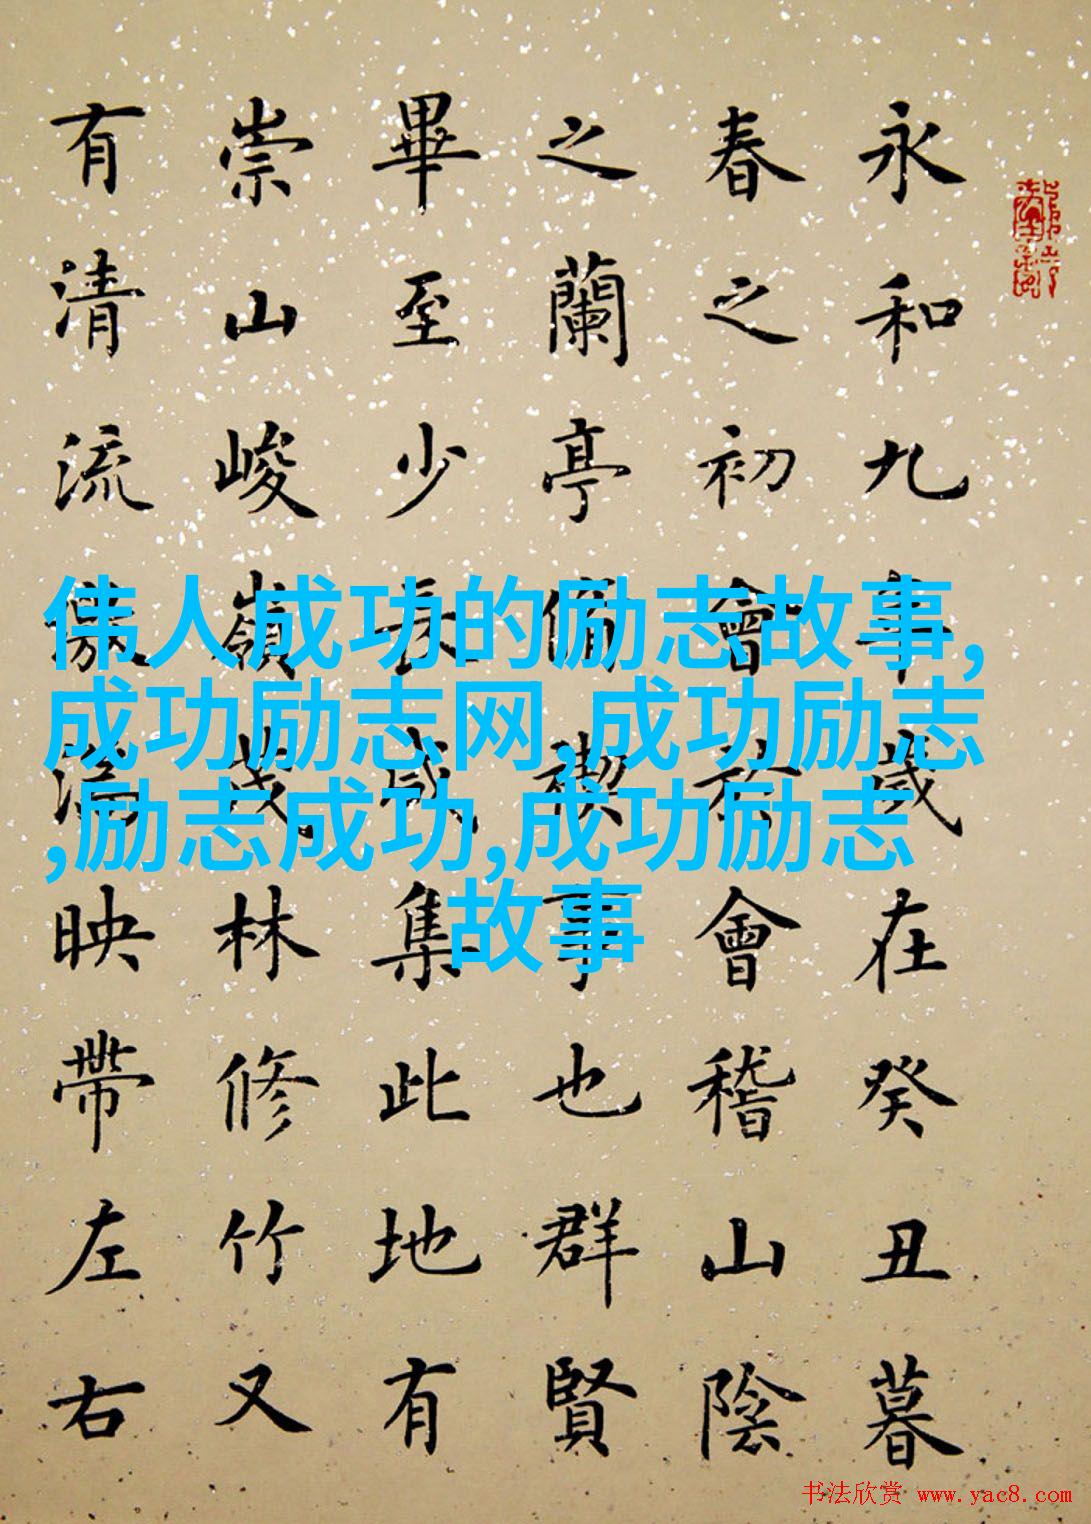 永和九年歲在癸丑暮
春之初會於會稽山陰
之蘭亭脩禊事也群賢
畢至少長咸集此地有
崇山峻嶺茂林修竹又
有清流激湍映帶左右
伟人成功的励志故事,
成功励志网,成功励志
,励志成功,成功励志
故事
书法欣赏 www.yac8.com